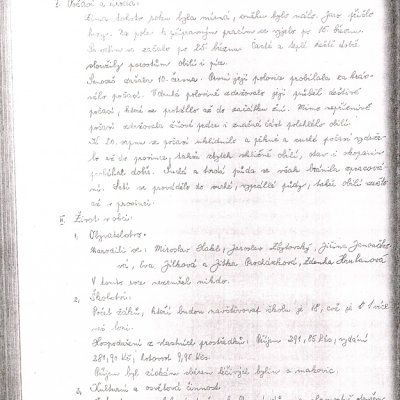 I. Počasí a úroda:
Zima tohoto roku byla mírná, sněhu bylo málo. Jaro přišlo
brzy. Na pole k přípravným pracím se vyjelo po 15. březnu.
S setím se začalo po 25. březnu. Časté a teplé deště dobře
sloužily porostům obilí i píce.
Senoseč začala 10. června. První její polovice probíhala za krás-
ného počasí. Druhá polovice zdržovalo její průběh deštivé
počasí, které se protáhlo až do začátku žní. Mimo nepříznivé
počasí zdržovala žňové práce i značná část polehlého obilí.
Až 20. srpna se počasí uklidnilo a pěkné a suché počasí vydrže-
lo až do prosince, takže zbytek sklizně obilí, otav i okopanin
probíhal dobře. Suchá a tvrdá půda se však bránila zpracová-
ní. Setí se provádělo do suché, vyprahlé půdy, takže obilí vzešlo
až v prosinci.
II. Život v obci:
1, Obyvatelstvo.
Narodili se: Miroslav Habl, Jaroslav Zbytovský, Jiřina Janouško-
vá, Eva Jílková a Jitka Procházková, Zdenka Hrubanová
V tomto roce nezemřel nikdo.
2, Školství:
Počet žáků, kteří budou navštěvovat školu je 18, což je o 1 více
než loni.
Hospodaření z vlastních prostředků: Příjem 291,85 Kčs, vydání
281,90 Kčs, hotovost 9,95 Kčs.
Příjem byl získán sběrem léčivých bylin a makovic.
3, Kulturní a osvětová činnost.